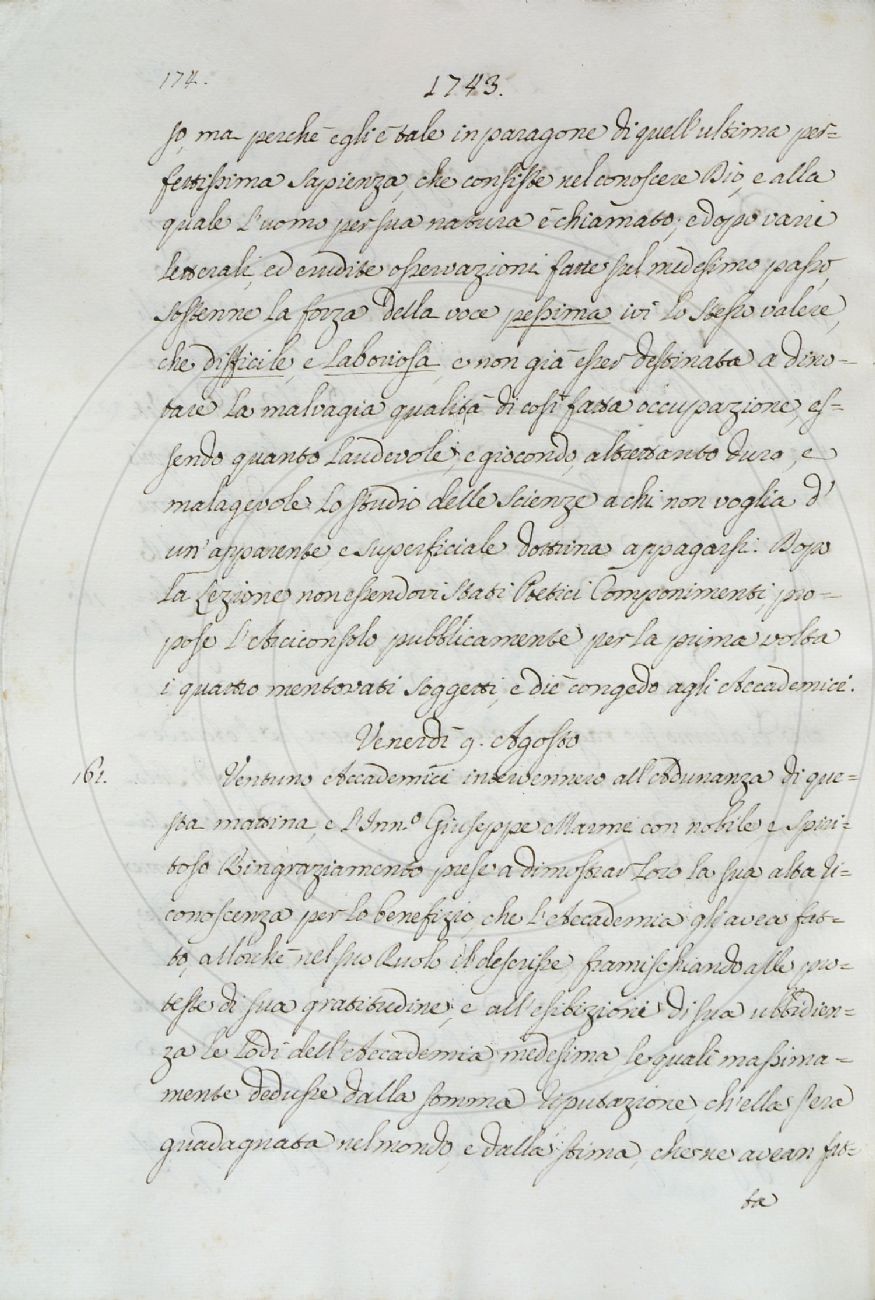 174.
1743.
so, ma perchè egli è tale in paragone di quell'ultima per=
fettissima sapienza, che consiste nel conoscere Dio, e alla
quale l'uomo per sua natura è chiamato; e dopo varie
letterali, ed erudite osservazioni fatte sul medesimo passo,
sostenne la forza della voce pessima ivi lo stesso valere,
che difficile, e laboriosa, e non già esser destinata a dino=
tare la malvagia qualità di così fatta occupazione, es=
sendo quanto laudevole, e giocondo, altrettanto duro, e
malagevole lo studio delle scienze a chi non voglia d'
un'apparente e superficiale dottrina appagarsi. Dopo
la Lezione non essendovi stati Poetici Componimenti, pro=
pose l'Arciconsolo pubblicamente per la prima volta
i quattro mentovati soggetti, e diè congedo agli Accademici.
Venerdì 9. Agosto
161. Ventuno Accademici intervennero all'Adunanza di que=
sta mattina, e l'Inn.º Giuseppe Marmi con nobile, e spiri=
toso Ringraziamento prese a dimostrar loro la sua alta ri=
conoscenza per lo benefizio, che l'Accademia gli avea fat=
to, allorchè nel suo Ruolo il descrisse, framischiando alle pro=
teste di sua gratitudine, e all'esibizioni di sua ubbidien=
za le lodi dell'Accademia medesima, le quali massima=
mente dedusse dalla somma riputazione, ch'ella s'era
guadagnata nel mondo, e dalla stima, che ne avean fat=
ta